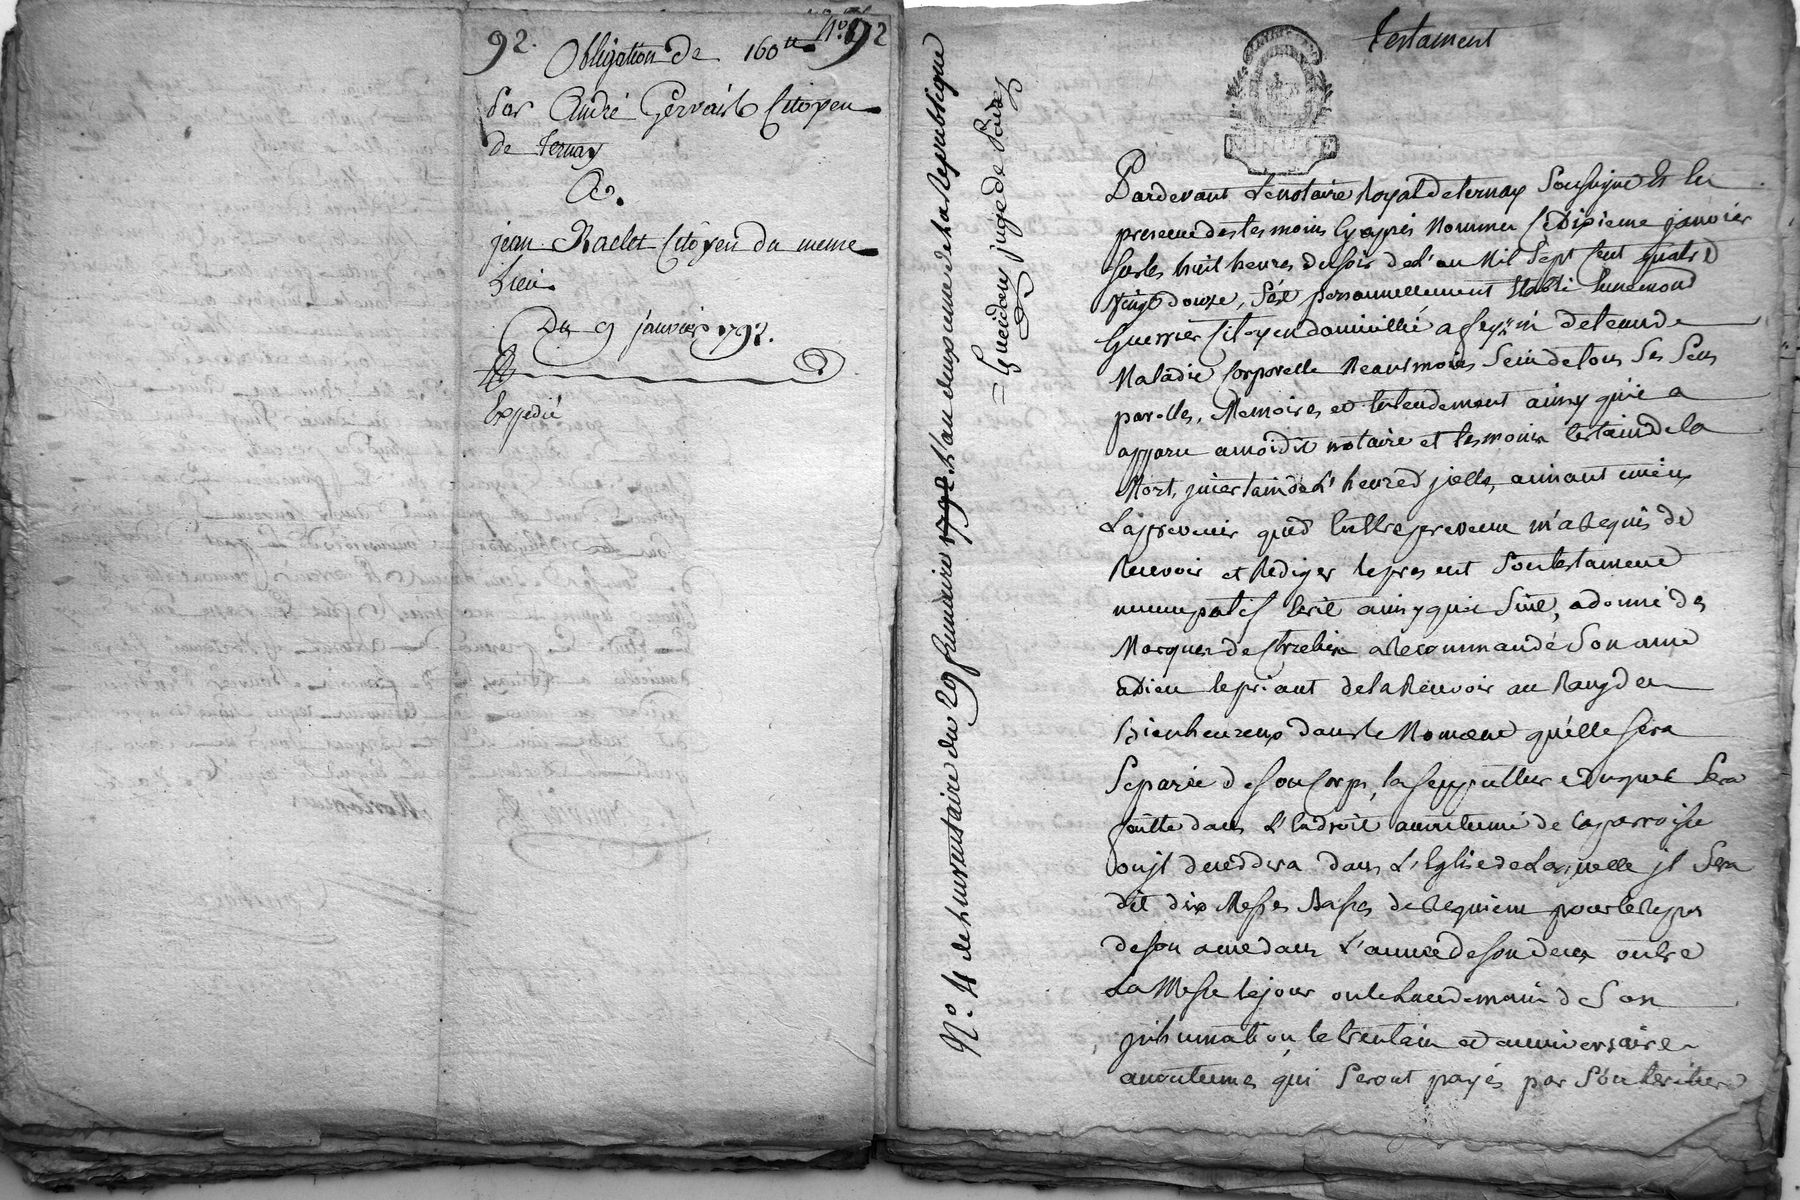 92.
N.º 92
Obligation de 160 ₶
par André Gervais Citoyen
de ternay
A.
jean Raclet Citoyen du meme
Lieu
Du 9 janvier 1792.
Expedié
testament
MINUTE
N.º 4 de L'inventaire du 29 frimaire 1792 L'an deuxieme de La Republique
juge de Paix
Pardevant Le notaire Royal de ternay Soussigné Et En
presence des tesmoins Cy apres Nommes Le Dixieme janvier
Sur les huit heures du Soir de L'an Mil Sept Cent quatre
vingt douze, S'est personnellement Etabli
Guerrier Citoyen domicillié a feyzin detenu de
Maladie Corporelle Neantmoins Sein de tous Ses Sens
parolles, Memoires et Entendement ainsy qu'il a
apparu a moidit notaire et tesmoins Certain de la
Mort, jncertain de L' heure d'jcelle, aimant mieux
La prevenir que d'En Etre prevenu m'a Requis de
Recevoir et Rediger Le present Son testament
nuncupatif Ecrit ainsy qui Suit, a donné des
Marques de Chretien a Recommandé Son ame
a Dieu Le priant de la Recevoir au Rang des
Bienheureux dans Le Moment qu'elle Sera
Separée de Son Corps, La Sepulture duquel Sera
faitte dans L'Endroit accoutumé de la parroisse
ou jl decedera dans L'Eglise de Laquelle jl Sera
dit dix Messes Basses de Requiem pour le Repos
de Son ame dans L'année de Son deces outre
La Messe Le jour ou le Lendemain de Son
jnhumation, le trentain et anniversaire
accoutumes qui Seront payés par Son heritiere